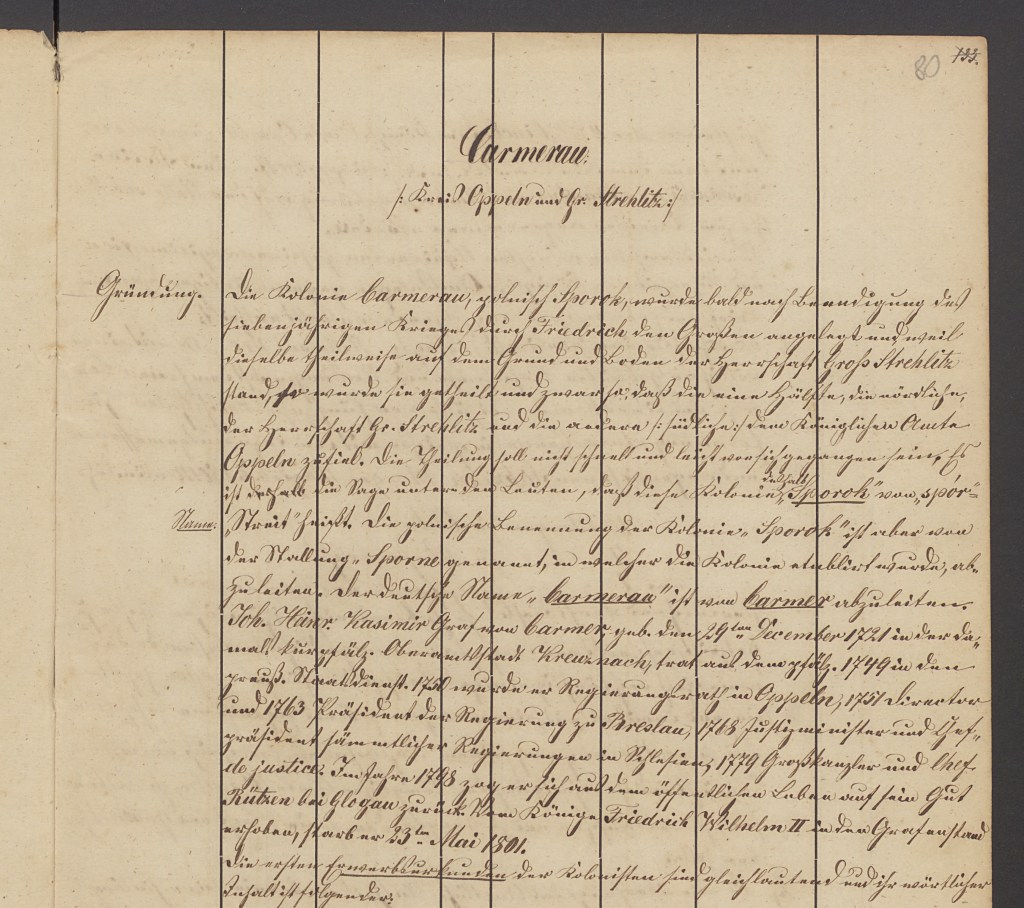 133.
80
Carmerau.
/: Kreis Oppeln und Gr. Strehlitz :/
Gründung.
Die Kolonie Carmerau, polnisch Sporok, wurde bald nach Beendigung des
siebenjährigen Krieges durch Friedrich den Großen angelegt und weil
dieselbe theilweise auf dem Grund und Boden der Herrschaft Groß Strehlitz
stand, so wurde sie getheilt und zwar so, daß die eine Hälfte, die nördliche,
der Herrschaft Gr. Strehlitz und die andere /: südliche :/ dem Königlichen Amte
Oppeln zufiel. Die Theilung soll nicht schnell und leicht vor sich gegangen sein. Es
ist deshalb die Sage unter den Leuten, daß diese Kolonie deshalb „Sporok" von „spór"=
Name.
„Streit" heißt. Die polnische Benennung der Kolonie „Sporok" ist aber von
der Stallung „Sporne genannt, in welcher die Kolonie etablirt wurde, ab=
zuleiten. Der deutsche Name „Carmerau" ist von Carmer abzuleiten.
Joh. Heinr. Kasimir Graf von Carmer geb. den 29ten December 1721 in der da=
mals kurpfälz. Oberamtsstadt Kreuznach, trat aus dem pfälz. 1749 in den
preuß. Staatsdienst. 1750 wurde er Regierungsrath in Oppeln, 1751 Director
und 1763 Präsident der Regierung zu Breslau, 1768 Justizminister und Chef=
präsident sämmtlicher Regierungen in Schlesien, 1779 Großkanzler und Chef
de justice. Im Jahre 1798 zog er sich aus dem öffentlichen Leben auf sein Gut
Rützen bei Glogau zurück. Vom Könige Friedrich Wilhelm II in den Grafenstand
erhoben, starb er 23ten Mai 1801.
Die ersten Erwerbsurkunden der Kolonisten sind gleichlautend und ihr wörtlicher
Inhalt ist folgender: